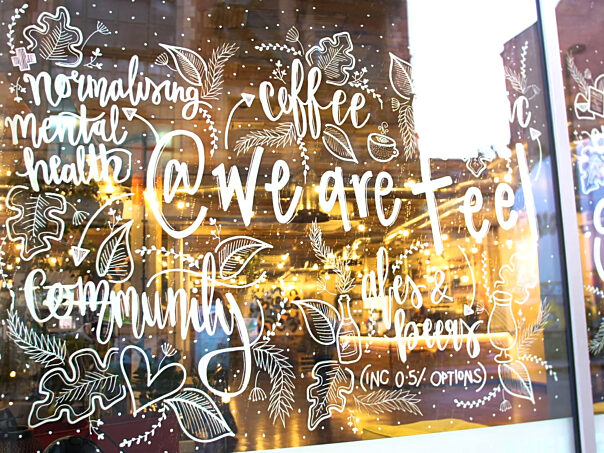 normalising
mental
health
coffee
@We are feel
community
ales &
beers
(INC 0·5% OPTIONS)